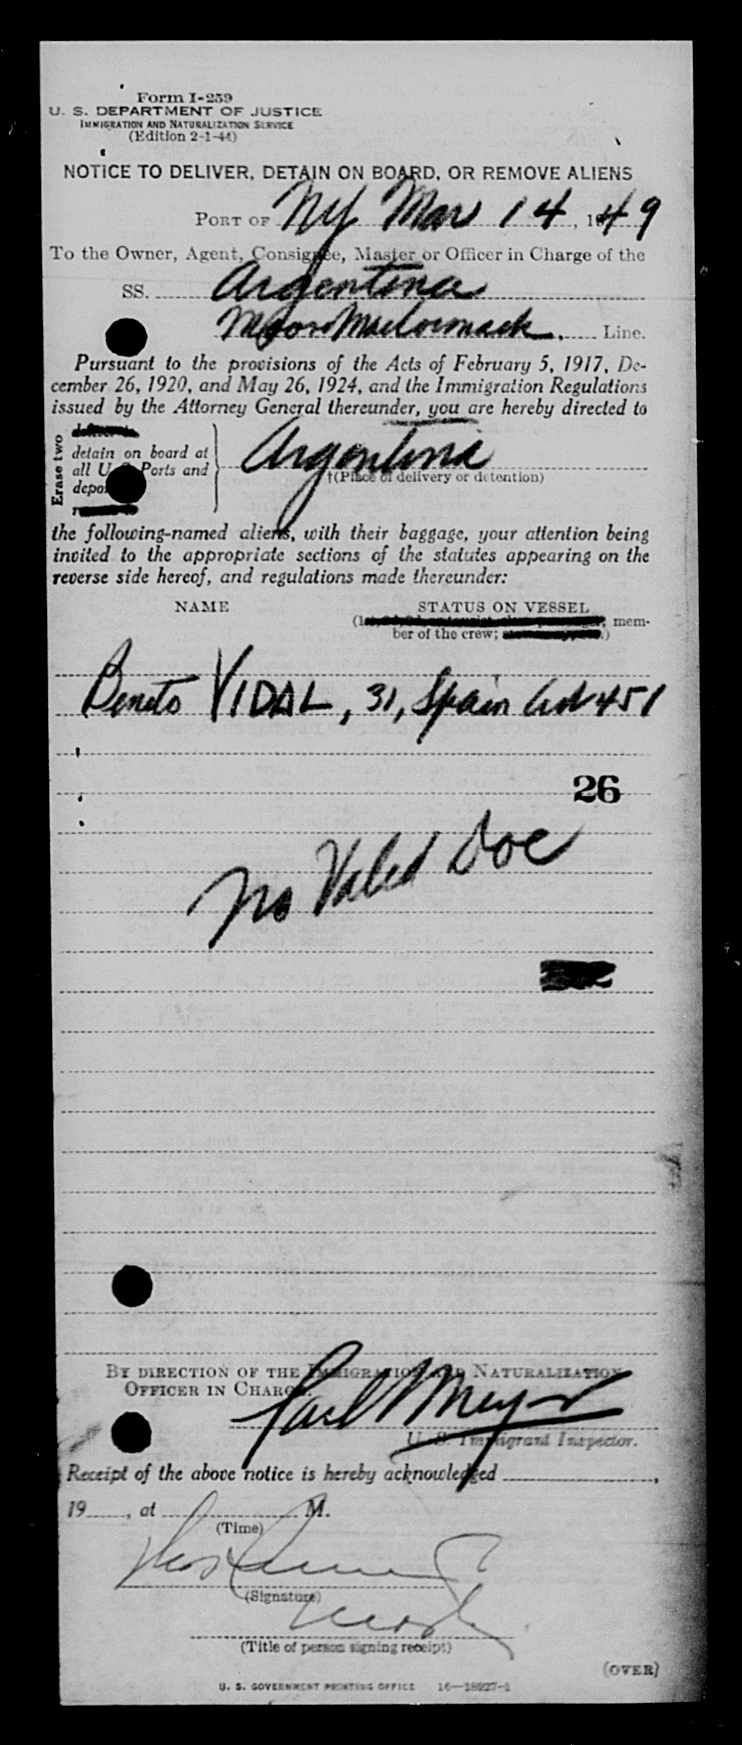 Form I-259
U. S. DEPARTMENT OF JUSTICE
IMMIGRATION AND NATURALIZATION SERVICE
(Edition 2-1-44)
NOTICE TO DELIVER, DETAIN ON BOARD, OR REMOVE ALIENS
PORT OF NY Mar 14, 1949
To the Owner, Agent, Consignee, Master or Officer in Charge of the
SS. Argentina
Moore MacCormack. Line.
Pursuant to the provisions of the Acts of February 5, 1917, De-
cember 26, 1920, and May 26, 1924, and the Immigration Regulations
issued by the Attorney General thereunder, you are hereby directed to
Erase two
detain on board at
all U. S. Ports and
Argentina
†(Place of delivery or detention)
the following-named aliens, with their baggage, your attention being
invited to the appropriate sections of the statutes appearing on the
reverse side hereof, and regulations made thereunder:
NAME STATUS ON VESSEL
mem-
ber of the crew;
Benito VIDAL, 31, Spain Art 451
26
no Valid Doc
BY DIRECTION OF THE IMMIGRATION AND NATURALIZATION
OFFICER IN CHARGE.
Carl Meyer
U. S. Immigrant Inspector.
Receipt of the above notice is hereby acknowledged
19, at M.
(Time)
(Signature)
(Title of person signing receipt)
(OVER)
U. S. GOVERNMENT PRINTING OFFICE 16—18927-1